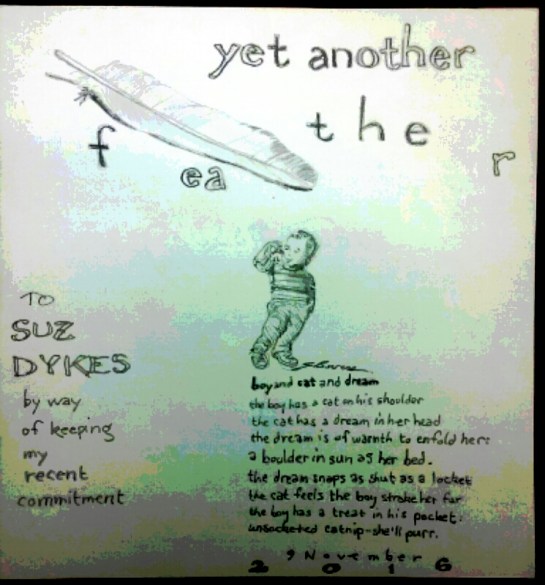 yet another
f ea t h e r
TO
SUZ
DYKES
by way
of keeping
my
recent
commitment
boy and cat and dream
the boy has a cat on his shoulder
the cat has a dream in her head
the dream is of warmth to enfold her:
a boulder in sun as her bed.
the dream snaps as shut as a locket
the cat feels the boy stroke her fur
the boy has a treat in his pocket:
unsocketed catnip-she'll purr.
9 November
2 0 1 6